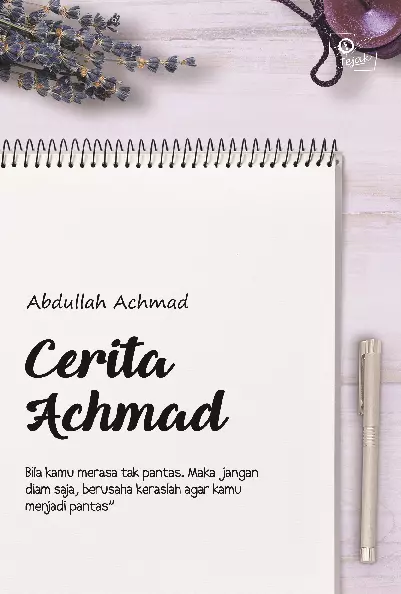 Jejak
Abdullah Achmad
Cerita
Achmad
Bila kamu merasa tak pantas. Maka jangan
diam saja, berusaha keraslah agar kamu
menjadi pantas”